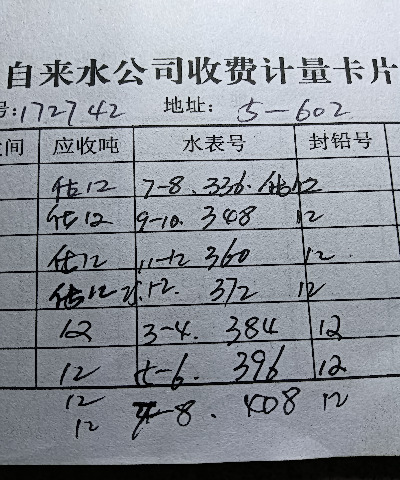 自来水公司收费计量卡片
号:172742 地址: 5-602
间 应收吨 水表号 封铅号
估12 7-8. 336. 估12
估12 9-10. 348 12
估12 11-12 360 12
估12 1-2. 372 12
12 3-4. 384 12
12 5-6. 396 12
12 7-8. 408 12
12